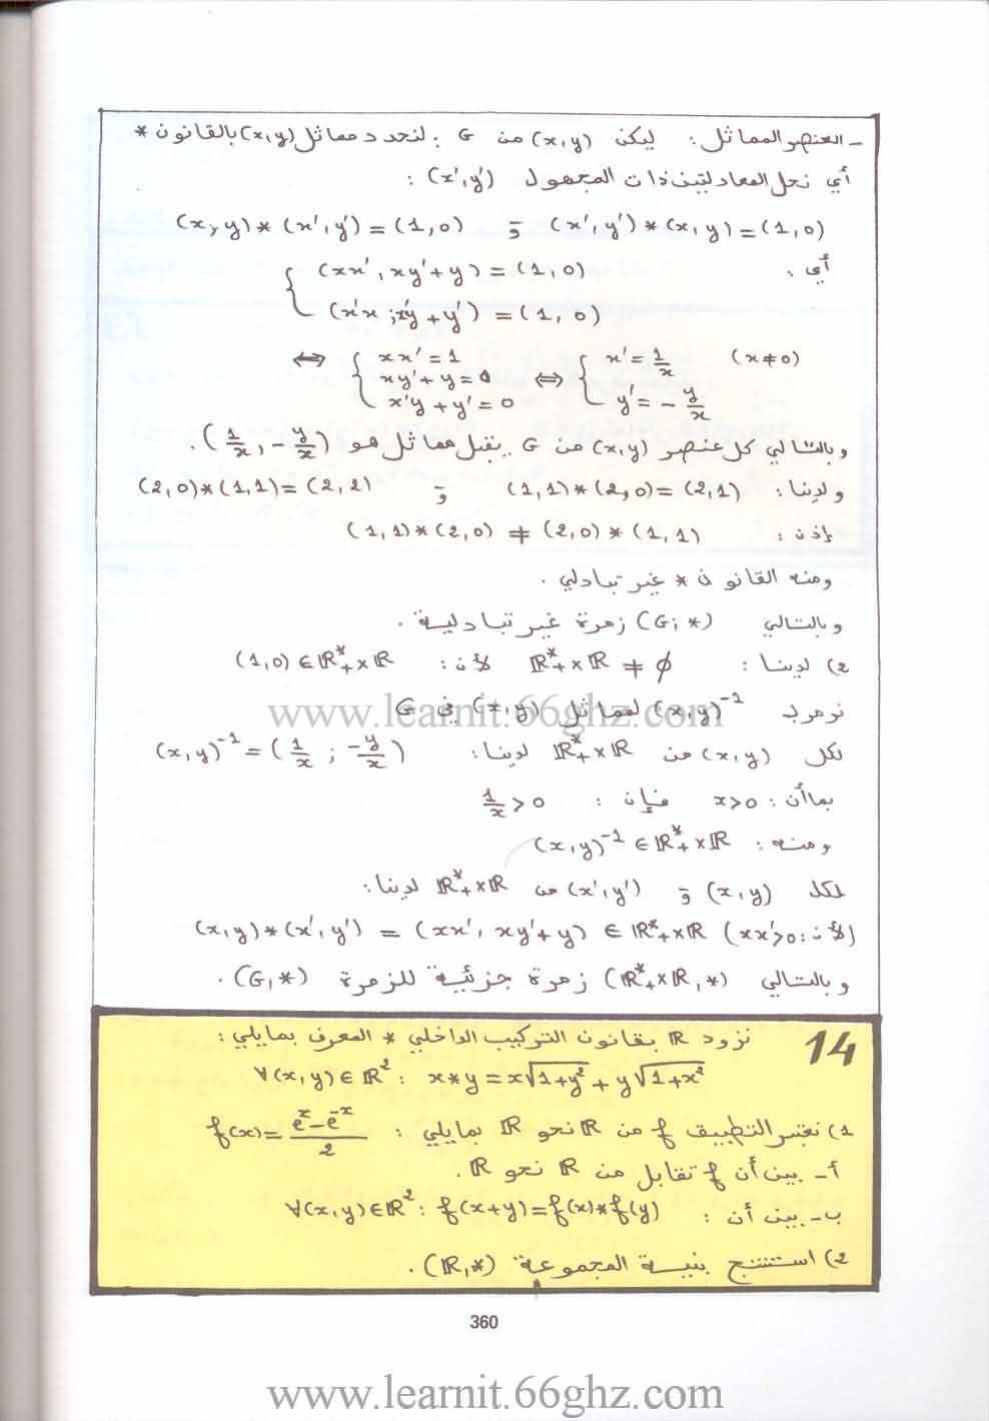 ـ العنصر المماثل : ليكن (x,y) من G : لنحدد مماثل (x,y) بالقانون *
أي نحل المعادلتين ذات المجهول (x',y') :
(x,y)*(x',y')=(1,0) و (x',y')*(x,y)=(1,0)
أي : { (xx', xy'+y)=(1,0)
(x'x ; x'y+y')=(1,0)
⇔ { xx'=1 ; xy'+y=0 ; x'y+y'=0 ⇔ { x'=1/x ; y'=-y/x (x≠0)
وبالتالي كل عنصر (x,y) من G يقبل مماثل هو (1/x, -y/x).
ولدينا : (1,1)*(2,0)=(2,1) و (2,0)*(1,1)=(2,2)
إذن : (1,1)*(2,0) ≠ (2,0)*(1,1)
ومنه القانون * غير تبادلي .
وبالتالي (G;*) زمرة غير تبادلية .
2) لدينا : ℝ*₊×ℝ ≠ ∅ لأن : (1,0)∈ℝ*₊×ℝ
نرمز بـ (x,y)⁻¹ لمماثل (x,y) في G
www.learnit.66ghz.com
لكل (x,y) من ℝ*₊×ℝ لدينا : (x,y)⁻¹=(1/x ; -y/x)
بما أن : x>0 فإن : 1/x>0
ومنه : (x,y)⁻¹∈ℝ*₊×ℝ
لكل (x,y) و (x',y') من ℝ*₊×ℝ لدينا :
(x,y)*(x',y') = (xx', xy'+y) ∈ ℝ*₊×ℝ (لأن : xx'>0)
وبالتالي (ℝ*₊×ℝ,*) زمرة جزئية للزمرة (G,*) .
14 نزود ℝ بقانون التركيب الداخلي * المعرف بمايلي :
∀(x,y)∈ℝ² : x*y=x√(1+y²)+y√(1+x²)
1) نعتبر التطبيق f من ℝ نحو ℝ بمايلي : f(x)=(eˣ-e⁻ˣ)/2
أ- بين أن f تقابل من ℝ نحو ℝ .
ب- بين أن : ∀(x,y)∈ℝ² : f(x+y)=f(x)*f(y)
2) استنتج بنية المجموعة (ℝ,*) .
360
www.learnit.66ghz.com